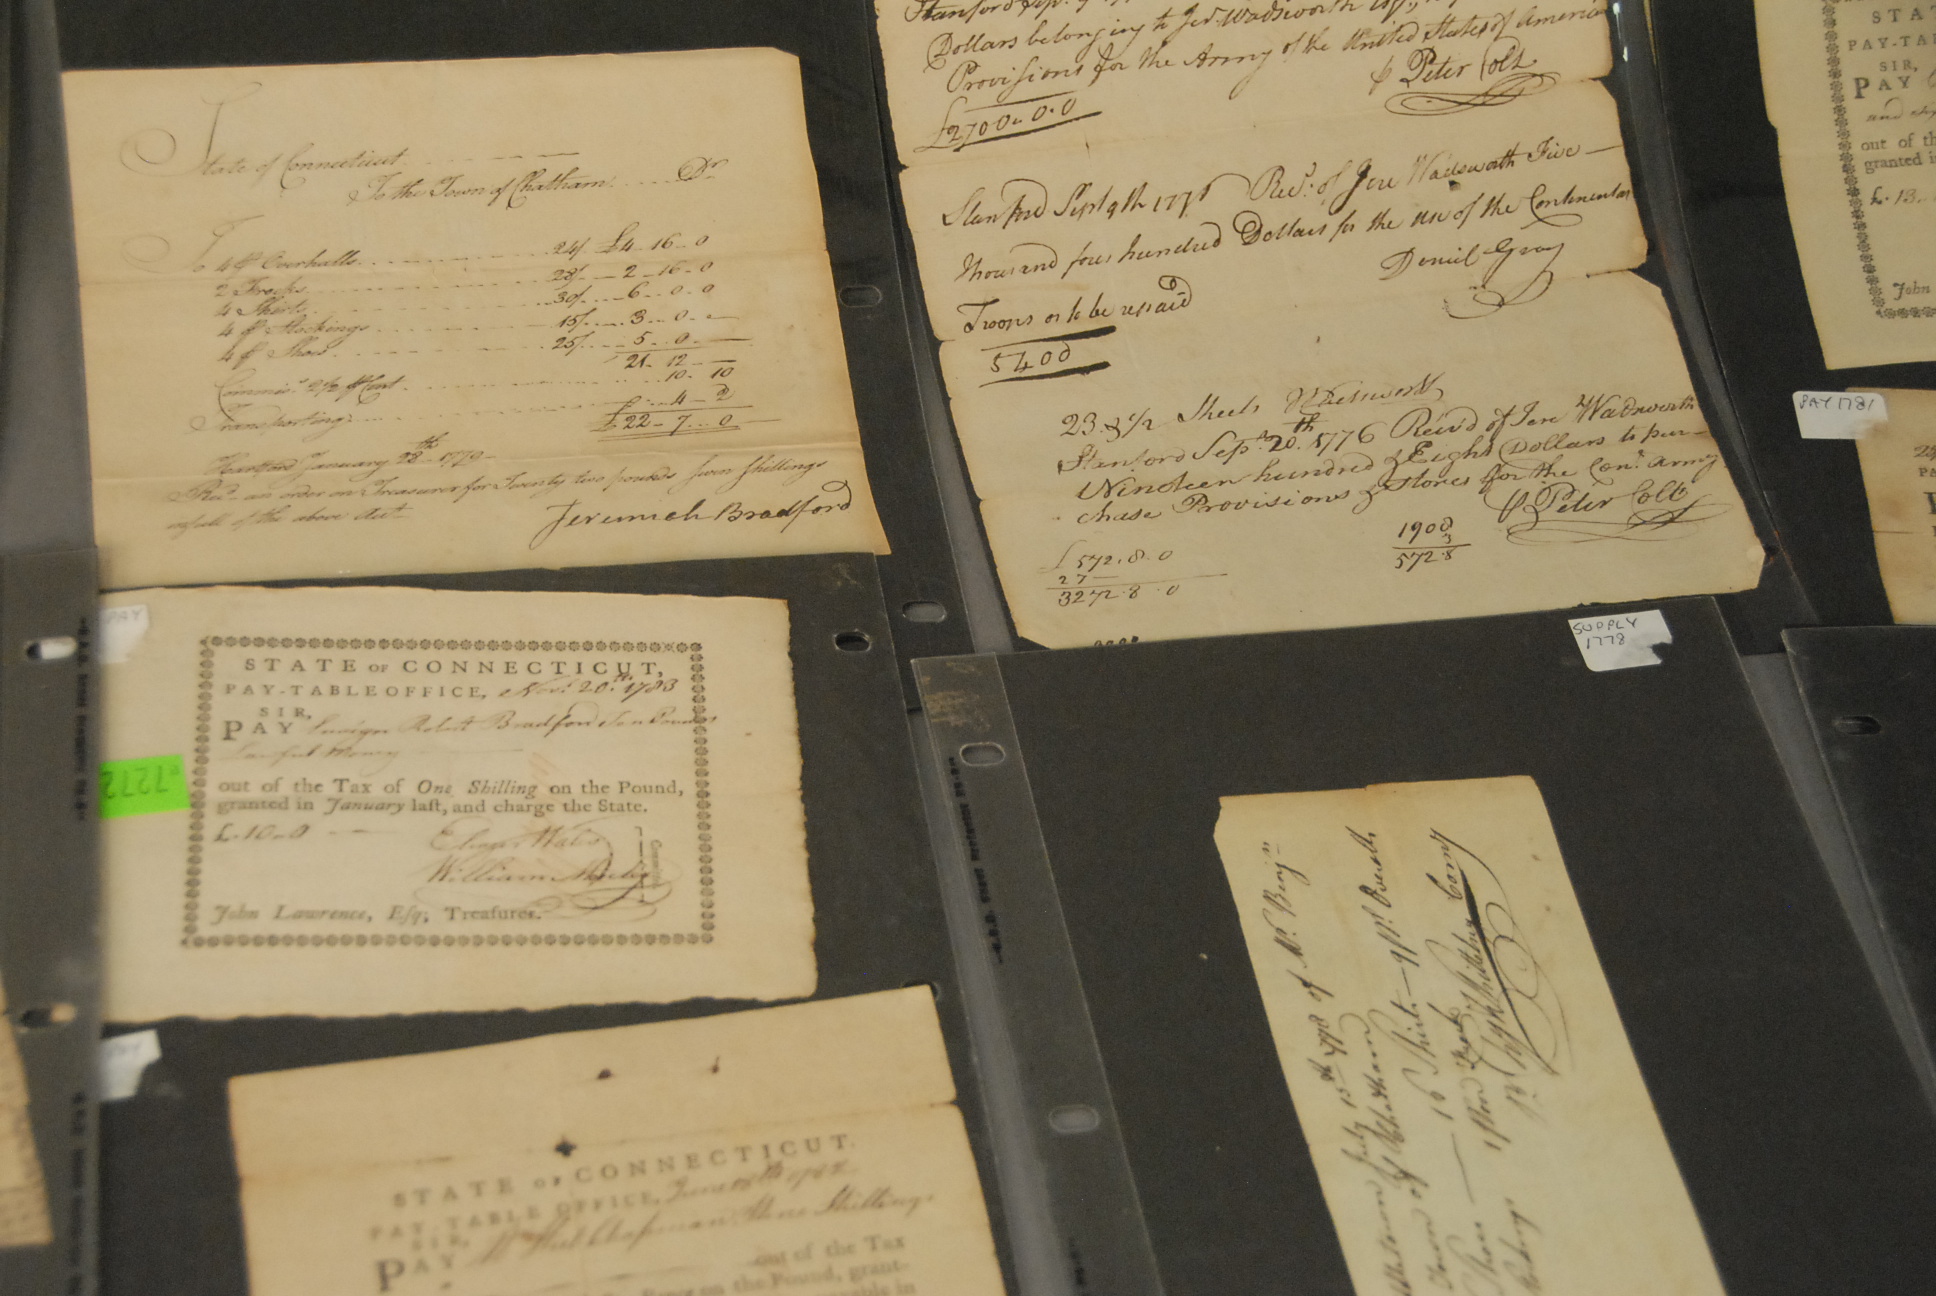 State of Connecticut
To the Town of Chatham Dr
To 4 pr Overhalls 24/ £4-16-0
2 Frocks 28/ 2-16-0
4 Shirts 30/ 6-0-0
4 pr Stockings 15/ 3-0-
4 pr Shoes 25/ 5-0-
21-12-
Commisn 2 1/2 pr Cent 10-10
Transporting 4-2
£22-7-0
Hartford January 28th 1779
Recd an order on Treasurer for Twenty two pounds seven shillings
in full of the above Act
Jeremiah Bradford
PAY
STATE OF CONNECTICUT,
PAY-TABLE OFFICE, Novr 20th 1783
SIR,
PAY Ensign Robert Bradford Ten Pounds
Lawful Money
out of the Tax of One Shilling on the Pound,
granted in January last, and charge the State.
£.10-0
William
John Lawrence, Esq; Treasurer.
7272
STATE OF CONNECTICUT.
PAY-TABLE OFFICE, June 1782
SIR,
PAY Chapman Shillings
out of the Tax
on the Pound, grant-
in
Stanford Sepr 9
Dollars belonging to Jer. Wadsworth Esqr,
Provisions for the Army of the United States of America
Peter Colt
£2700.0.0
Stanford Sept 9th 1776 Recd of Jere Wadsworth Five
thousand four hundred Dollars for the use of the Continental
Troops or to be repaid
Daniel Gray
5400
23.3 1/2 Sheets Wadsworth
Stanford Sepr 20th 1776 Receiv'd of Jere Wadsworth
Nineteen hundred & Eight Dollars to pur-
chase Provisions & Stores for the Conl Army
Peter Colt
1908
3
572.8
£572.8.0
27
3272.8.0
SUPPLY
1778
July 15th 1778 of Mr Benj-
Town of Chatham
16 Shirts - 9 pr Overalls
Shoes
STA
PAY-TA
SIR,
PAY
out of th
granted i
£.13
John
PAY 1781